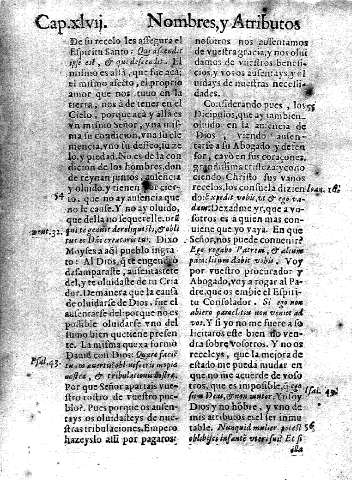 Cap. xlvij. Nombres, y Atributos
De su recelo les assegura el
Espiritu Santo: Qui ascendit
ipse est, & qui descendit. El
mismo es allà, que fue acà;
ti mismo afecto, el proprio
amor que nos tuuo en la
tierra, nos à de tener en el
Cielo, porque acà y allà es
vn mismo Señor, y vna mis-
ma su condicion, vna su cle-
mencia, vno su desseo, su ze-
lo, y piedad. No es de la con-
dicion de los Hombres, don-
de reynen juntos ausencia
y oluido, y tienen por cier-
54
to: que no ay ausencia que
no le cause. Y no ay oluido,
que della no se querelle.
Deut. 32.
qui te genuit dereliquisti, & obli-
tus es Dei creatoris tui: Dixo
Moyses a aqui pueblo ingra-
to: Al Dios, que te engendrò
desamparaste, ausentastete
del, y te oluidaste de tu Cria
dor. Demanera que la causa
de oluidarse de Dios, fue el
ausentarse del: porque no es
possible oluidarse vno del
sumo bien que tiene presen-
te. La misma quexa formò
Psal. 43.
Dauid con Dios: Quare faciē
tuam auertis obliuisceris inopiæ
nostræ, & tribulationis nostræ.
Por que Señor apartais vues-
tro rostro de vuestro pue-
blo? Pues porque os ausen-
tays os oluidasteys de nues-
tras tribulaciones. Empero
hazeyslo assi por pagaros:
nosotros nos ausentamos
de vuestra gracia, y nos olui
damos de vuestros benefi-
cios, y vos os ausentays, y ol
uidays de nuestras necessi-
dades.
Considerando pues, los
55
Dicipulos, que ay tambien
oluido en la ausencia de
Dios, viendo ausentar-
se a su Abogado y defen-
sor, cayò en sus coraçones,
grandissima tristeza, y cono-
ciendo Christo sus vanos
recelos, los consuela dizien
Ioan. 16.
do: Expedit vobis, vt ego va-
dam. Dexadme yr, que a vo-
sotros es a quien mas con-
uiene que yo vaya. En que
Señor, nos puede conuenir?
Ego rogabo Patrem, & alium
paraclitum dabit vobis. Voy
por vuestro procurador y
Abogado, voy a rogar al Pa-
dre, que os embie el Espiritu
Consolador. Si ego non
abiero paraclitus non veniet ad
vos. Y si yo no me fuere a so
licitaros este bien no ven-
dra sobre vosotros. Y no os
receleys, que la mejora de
estado me pueda mudar en
que no me acuerde de voso-
tros, que es impossible,
Psal. 49.
sum Deus, & non mutor. Yo soy
Dios y no hōbre, y vno de
mis atributos es el ser inmu-
56
table. Nunquid mulier potest
obliuisci infantē vteri sui? Et si
illa